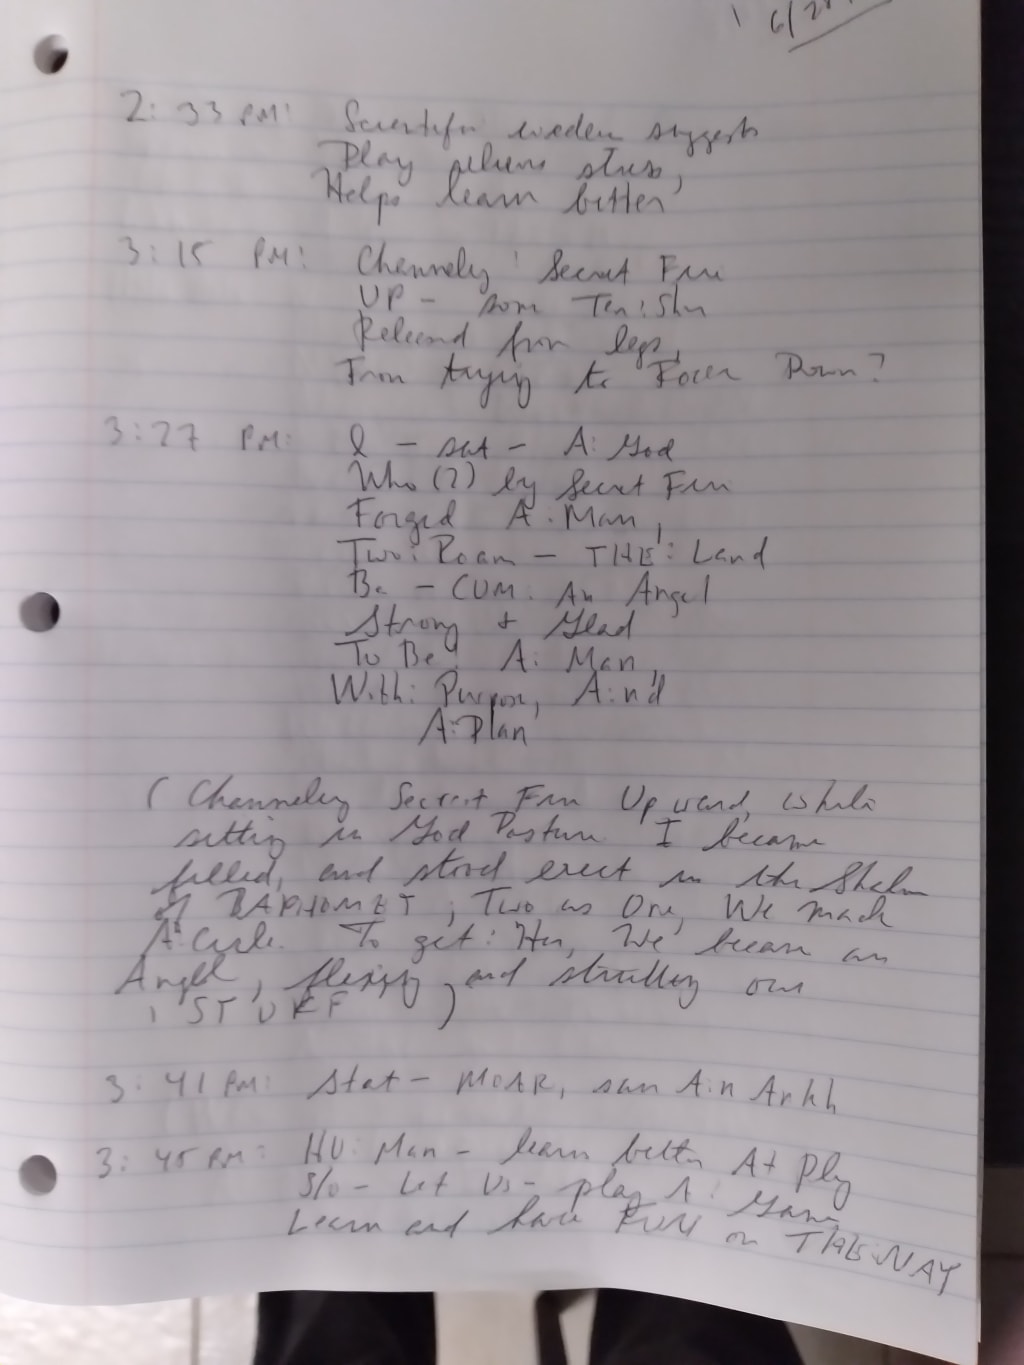 6/28
2:33 PM: Scientific evidence suggests
Play relieves stress,
Helps learn better
3:15 PM: Channeling Secret Fire
UP - som Ten:Shn
Released from legs,
From trying to Power Down?
3:27 PM: I - sat - A: God
Who (?) by Secret Fire
Forged A: Man,
Two: Roam - THE: Land
Be - CUM: An Angel
Strong & Glad
To Be A: Man,
With: Purpose, A:n'd
A:Plan
( Channeling Secret Fire Upward, while
sitting in God Posture I became
filled, and stood erect in the
of BAPHOMET; Two as One, We made
A: Circle. To get: Her, We became an
Angel, flexing, and strutting our
STUFF )
3:41 PM: Stat - MOAR, san A:n Ankh
3:45 PM: HU: Man - learn better At Play
S/o - Let Us - play A: Game,
Learn and have FUN on THE:WAY